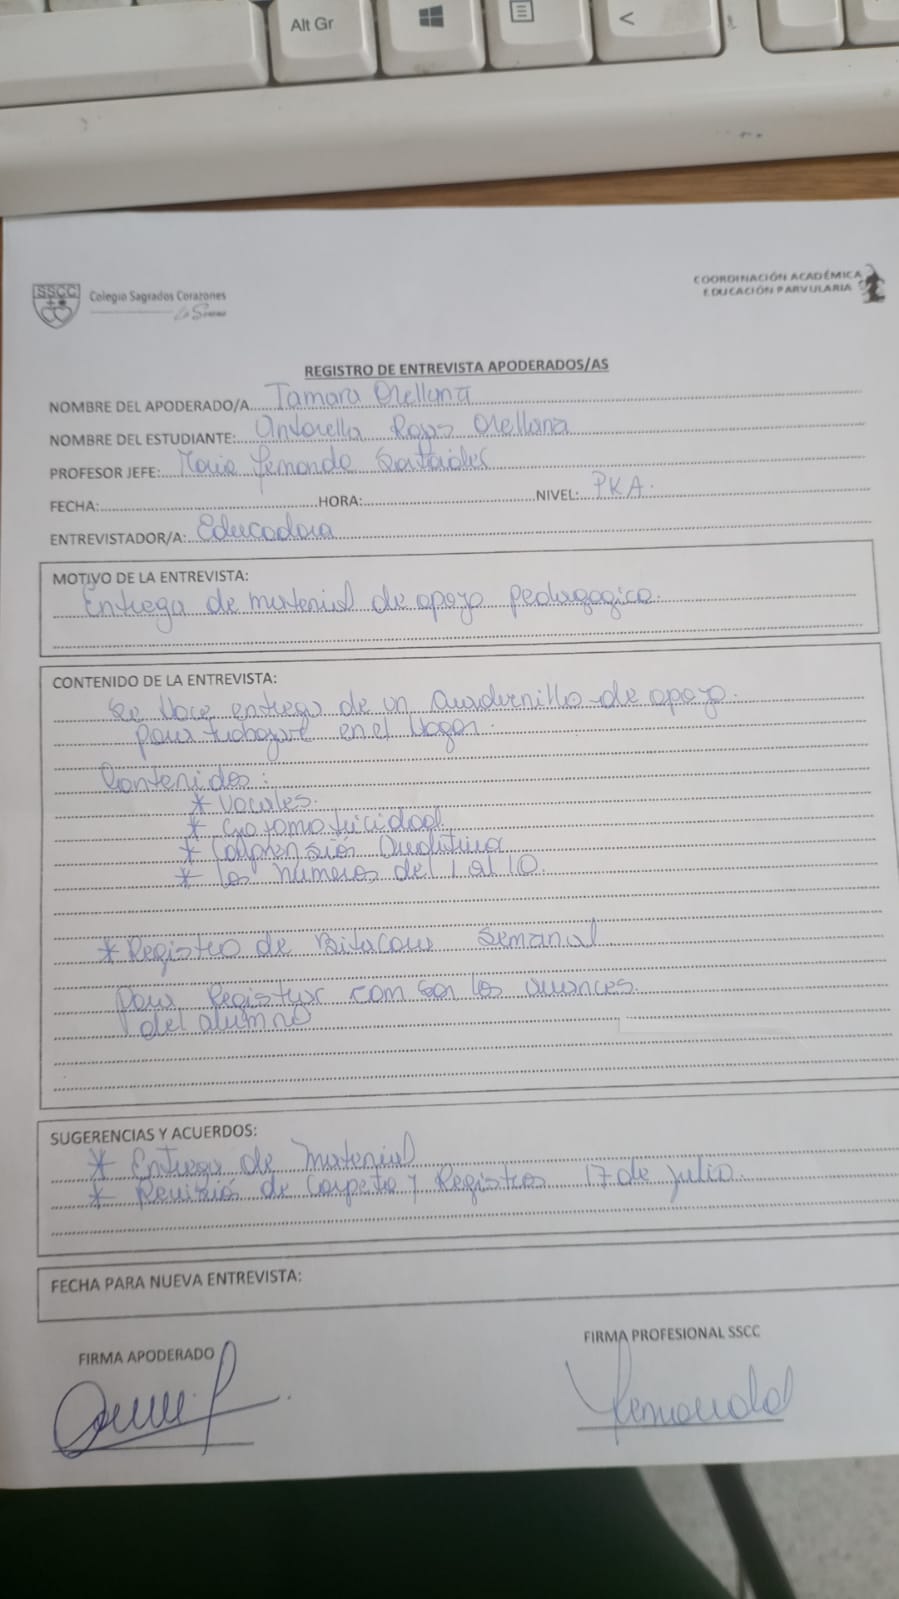 Alt Gr
<
SSCC
Colegio Sagrados Corazones
La Serena
COORDINACIÓN ACADÉMICA
EDUCACIÓN PARVULARIA
REGISTRO DE ENTREVISTA APODERADOS/AS
NOMBRE DEL APODERADO/A Tamara Orellana
NOMBRE DEL ESTUDIANTE: Antonella Rojas Orellana
PROFESOR JEFE: Maria Fernanda
FECHA: HORA: NIVEL: PKA.
ENTREVISTADOR/A: Educadora
MOTIVO DE LA ENTREVISTA:
Entrega de material de apoyo pedagogico.
CONTENIDO DE LA ENTREVISTA:
Se hace entrega de un cuadernillo de apoyo.
para trabajar en el hogar.
Contenidos:
* Vocales.
* Grafomotricidad.
* Comprensión Auditiva
* Los números del 1 al 10.
* Registro de Bitacora Semanal
para Registrar com son los avances.
del alumno
SUGERENCIAS Y ACUERDOS:
* Entrega de Material
* Revisión de Carpeta y Registros 17 de julio.
FECHA PARA NUEVA ENTREVISTA:
FIRMA APODERADO
FIRMA PROFESIONAL SSCC
Fernanda